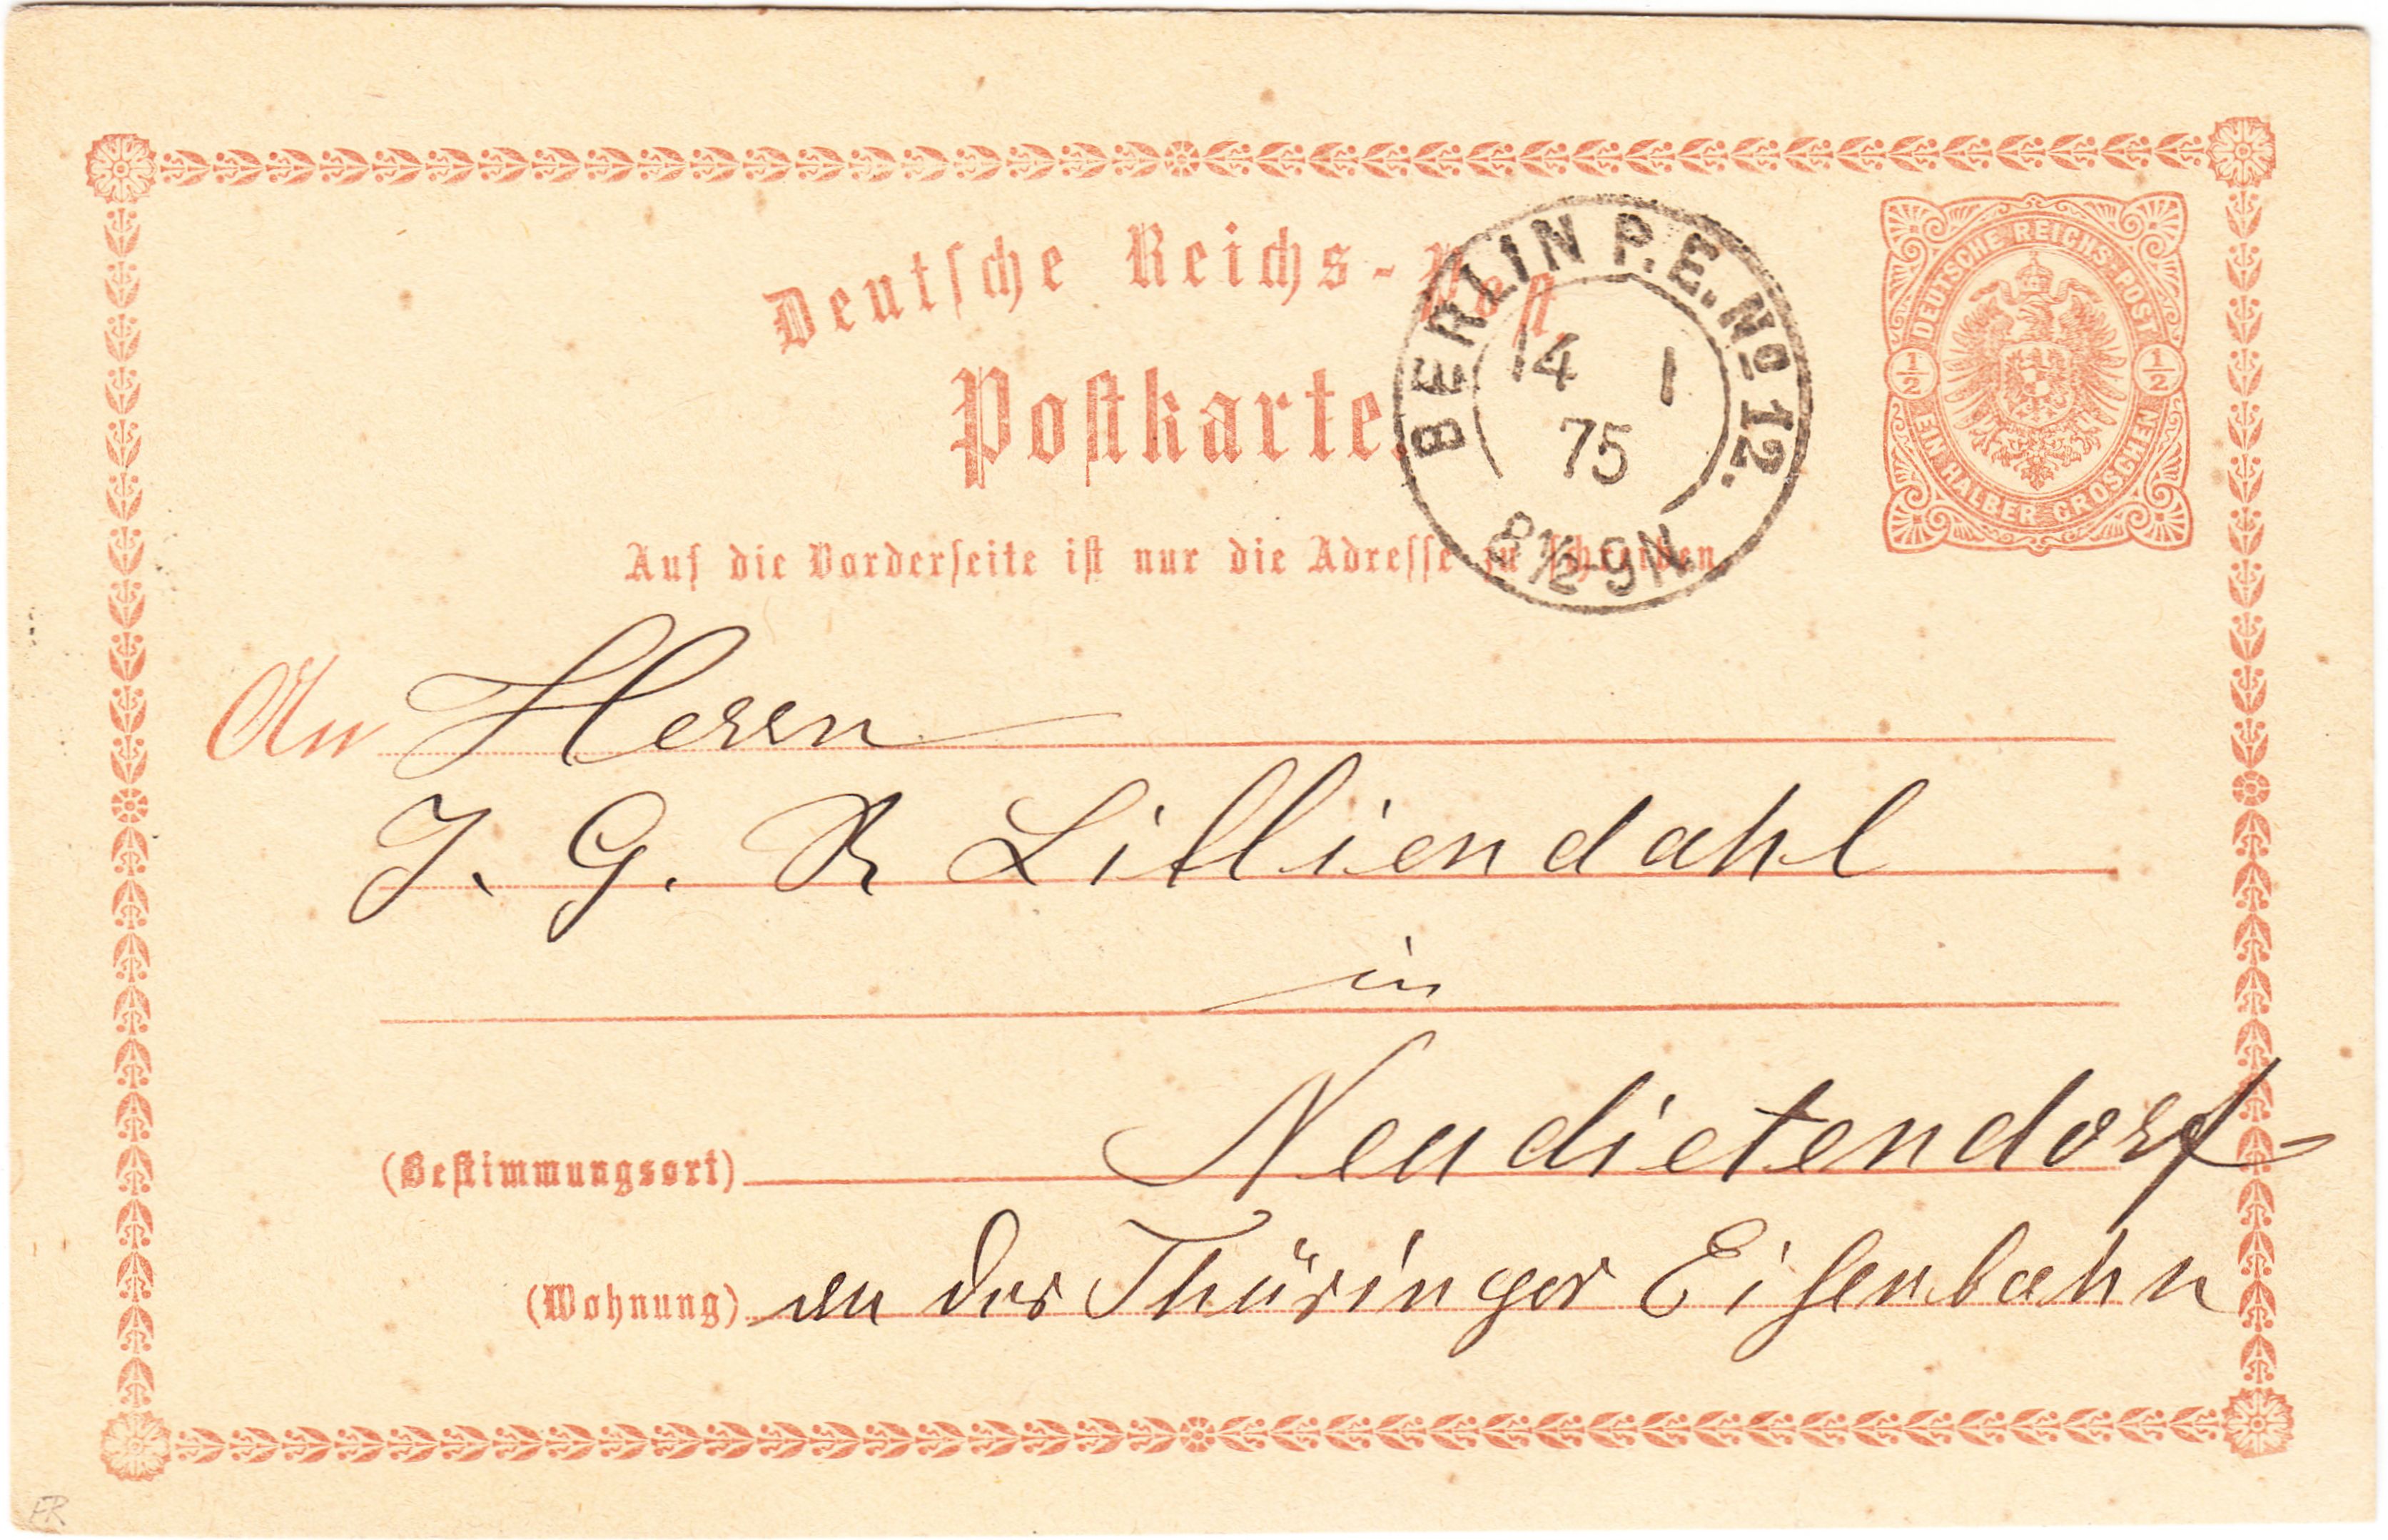 Deutsche Reichs-Post.
Postkarte.
BERLIN P.E. No 12.
14 1
75
8½-9N
DEUTSCHE REICHS-POST
½ ½
EIN HALBER GROSCHEN
Auf die Vorderseite ist nur die Adresse zu schreiben
An Herrn
J. G. R Lilliendahl
in
(Bestimmungsort) Neudietendorf-
(Wohnung) an der Thüringer Eisenbahn
ER